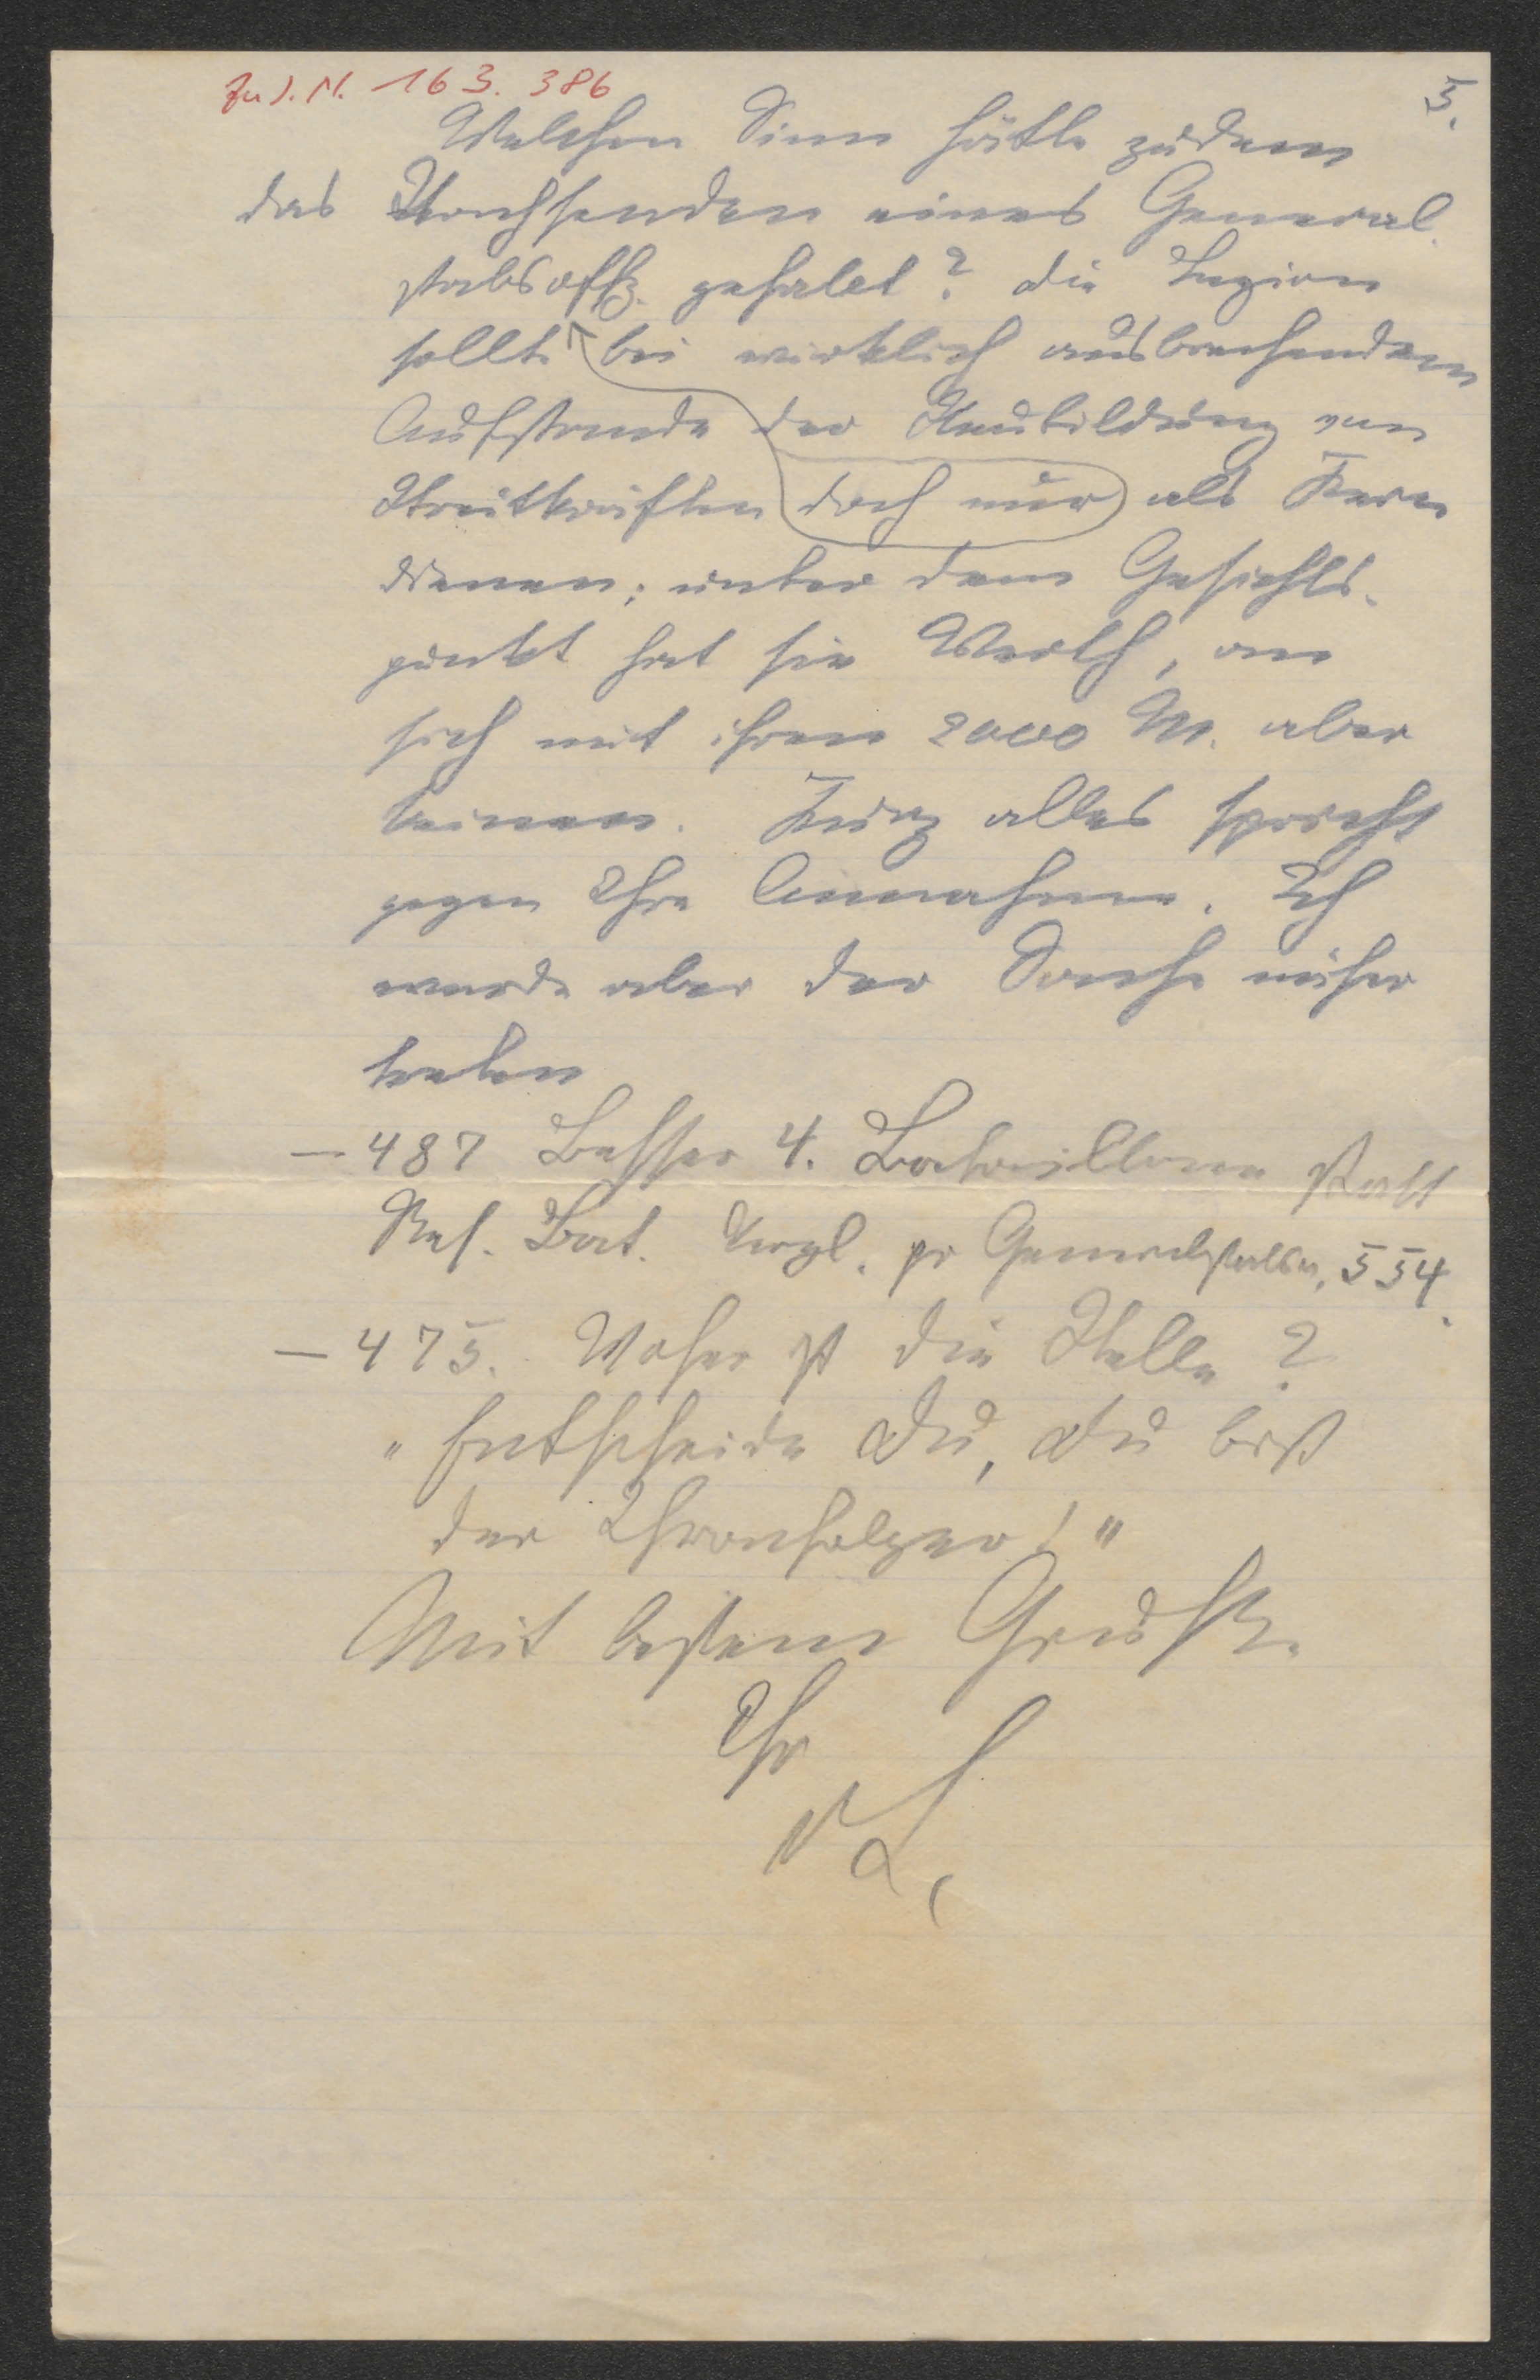 Zu J. N. 163.386
5.
Welchen Sinn hätte zudem
das Nachsenden eines General
stabsoffz. gehabt? Die Legion
sollte bei wirklich ausbrechendem
Aufstande der Neubildung von
Streitkräften doch nur als Kern
dienen; unter dem Gesichts-
punkt hat sie Werth, an
sich mit ihren 2000 M. aber
keinen. Kurz alles spricht
gegen Ihre Annahme. Ich
werde aber der Sache näher
treten
— 487 Besser 4. Bataillone statt
Res. Bat. Vergl. pr Generalstabsw. 554.
— 475. Woher ist die Stelle?
"Entscheide Du, Du bist
der Thronfolger!"
Mit bestem Gruße.
Ihr
v L.